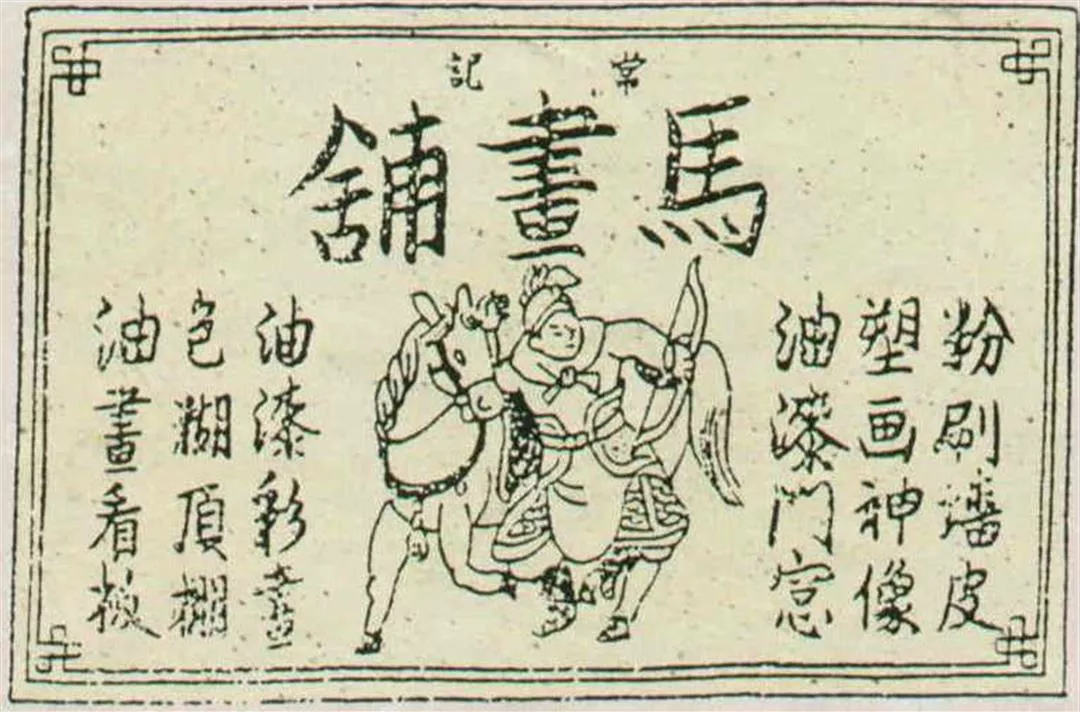 常記
馬畫舖
粉刷墻皮
塑画神像
油漆門窓
油漆彩畫
包糊頂棚
油畫看板